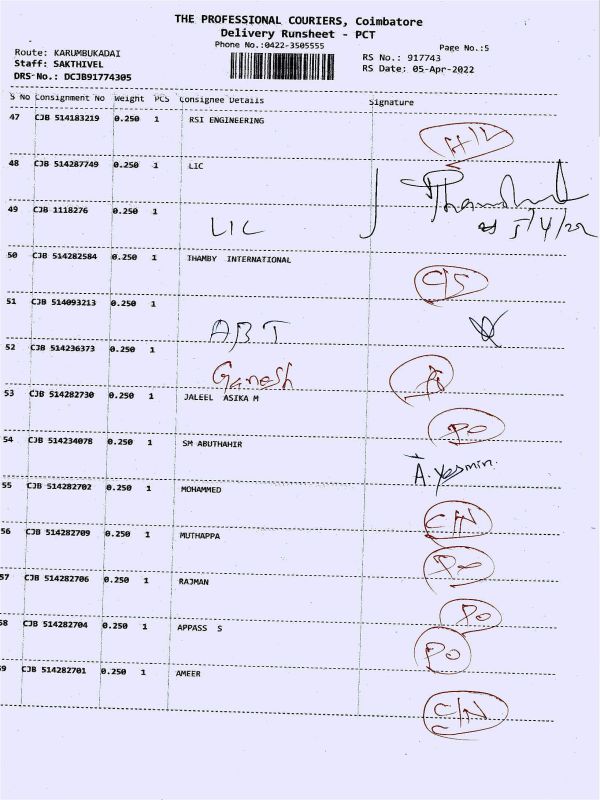 THE PROFESSIONAL COURIERS, Coimbatore
Delivery Runsheet - PCT
Phone No.:0422-3505555
Page No.:5
Route: KARUMBUKADAI
RS No.: 917743
Staff: SAKTHIVEL
RS Date: 05-Apr-2022
DRS-No.: DCJB91774305
S No Consignment No Weight PCS Consignee Details Signature
47 CJB 514183219 0.250 1 RSI ENGINEERING
48 CJB 514287749 0.250 1 LIC
49 CJB 1118276 0.250 1 LIC
5/4/22
50 CJB 514282584 0.250 1 THAMBY INTERNATIONAL
C/S
51 CJB 514093213 0.250 1 ABT
52 CJB 514236373 0.250 1 Ganesh
53 CJB 514282730 0.250 1 JALEEL ASIKA M
PO
54 CJB 514234078 0.250 1 SM ABUTHAHIR
A. Yasmin.
55 CJB 514282702 0.250 1 MOHAMMED
C/N
56 CJB 514282709 0.250 1 MUTHAPPA
PO
57 CJB 514282706 0.250 1 RAJMAN
PO
58 CJB 514282704 0.250 1 APPASS S
PO
59 CJB 514282701 0.250 1 AMEER
C/N